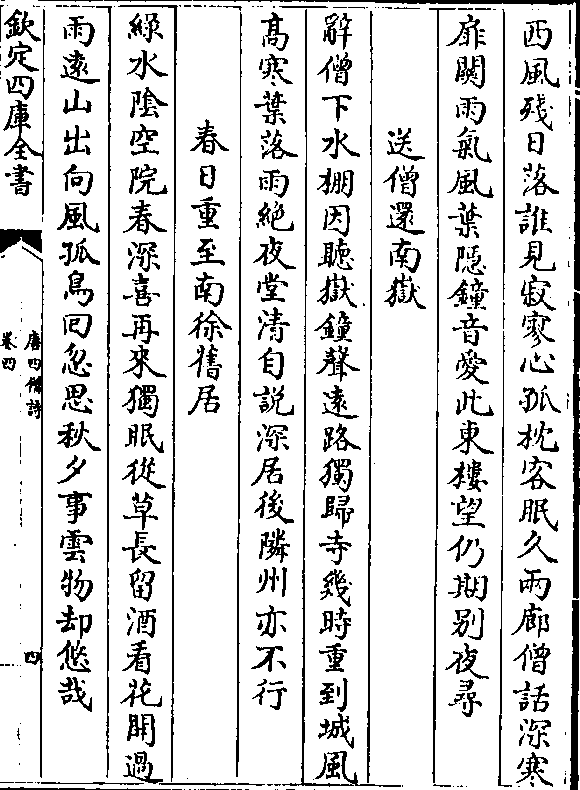 西風殘日落誰見寂寥心孤枕客眠久兩廊僧話深寒
扉關雨氣風葉隱鐘音愛此東樓望仍期别夜尋
送僧還南嶽
辭僧下水棚因聽嶽鐘聲逺路獨歸寺幾時重到城風
髙寒葉落雨絶夜堂清自説深居後隣州亦不行
春日重至南徐舊居
緑水陰空院春深喜再來獨眠從草長留酒看花開過
雨逺山出向風孤鳥回忽思秋夕事雲物却悠哉
欽定四庫全書
唐四僧詩
卷四
四